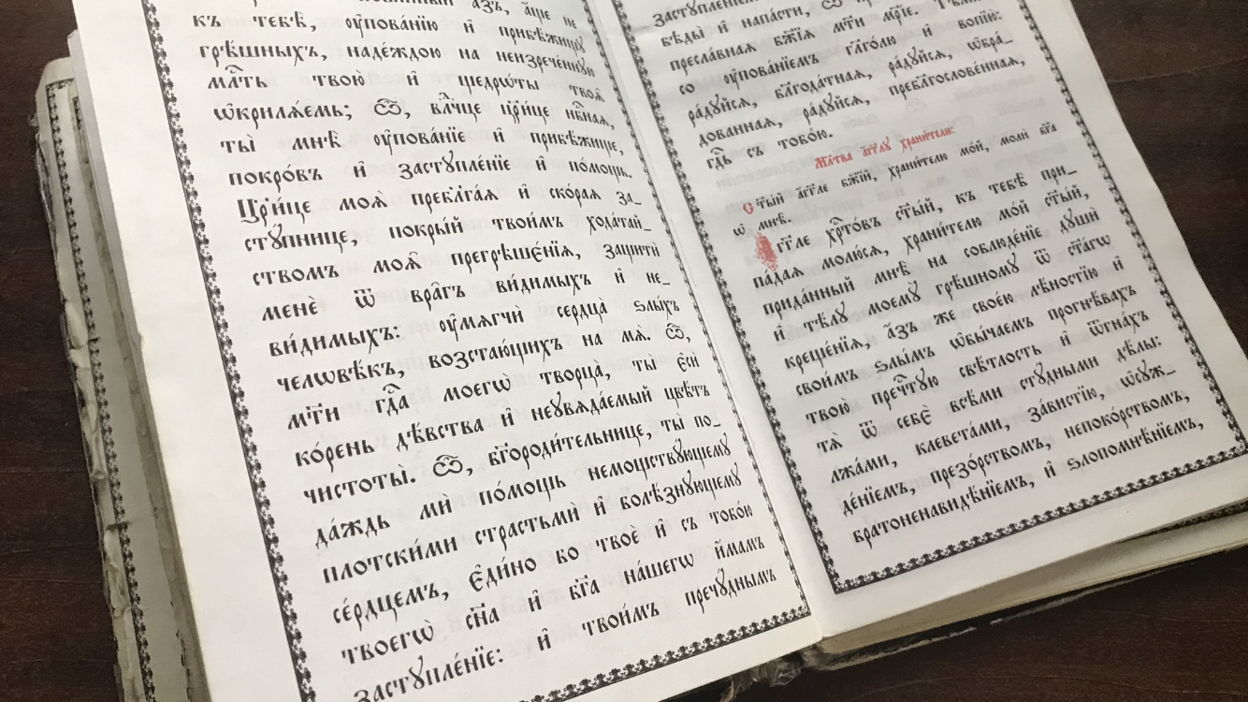 а҆́зъ, а҆́ще не
къ тебѣ̀, ᲂу҆пова́нїю и҆ прибѣ́жищꙋ
грѣ́шныхъ, наде́ждою на неизрече́ннꙋю
млⷭ҇ть твою̀ и҆ щедрѡ́ты твоѧ̑
ѡ҆крилѧ́емь; ѽ, влⷣчце цр҃и́це нбⷭ҇наѧ,
ты̀ мнѣ̀ ᲂу҆пова́нїе и҆ прибѣ́жище,
покро́въ и҆ застꙋпле́нїе и҆ по́мощь.
Цр҃и́це моѧ̀ преблг҃а́ѧ и҆ ско́раѧ за_
стꙋ́пнице, покры́й твои́мъ хода́тай_
ствомъ моѧ̑ прегрѣшє́нїѧ, защитѝ
менѐ ѿ вра̑гъ ви́димыхъ и҆ не_
ви́димыхъ: ᲂу҆мѧгчѝ сердца̀ ѕлы́хъ
человѣ̑къ, возстаю́щихъ на мѧ̀. ѽ,
мт҃и гдⷭ҇а моегѡ̀ творца̀, ты̀ є҆сѝ
ко́рень дѣ́вства и҆ неꙋвѧда́емый цвѣ́тъ
чистоты̀. ѽ, бг҃ороди́тельнице, ты̀ по_
да́ждь мѝ по́мощь немощствꙋ́ющемꙋ
плотски́ми страстьмѝ и҆ болѣ́знꙋющемꙋ
се́рдцемъ, є҆ди́но бо твоѐ и҆ съ тобо́ю
твоегѡ̀ сн҃а и҆ бг҃а на́шегѡ и҆́мамъ
застꙋпле́нїе: и҆ твои́мъ пречꙋ́днымъ
застꙋпле́нїемъ
бѣды̀ и҆ напа́сти, ѽ
пресла́внаѧ бж҃їѧ мт҃и мр҃і́е.
со ᲂу҆пова́нїемъ глаго́лю и҆ вопїю̀:
ра́дꙋйсѧ, блгода́тнаѧ, ра́дꙋйсѧ, ѡ҆бра_
до́ваннаѧ, ра́дꙋйсѧ, преблⷭ҇гослове́ннаѧ,
гдⷭ҇ь съ тобо́ю.
Млт҃ва а҆́гг҃лꙋ храни́телю:
С͠ты́й а҆́гг҃ле бж҃їй, храни́телю мо́й, молѝ бг҃а
ѡ҆ мнѣ̀.
А҆́гг҃ле хрⷭ҇то́въ ст҃ы́й, къ тебѣ̀ при_
па́даѧ молю́сѧ, храни́телю мо́й ст҃ы́й,
прида́нный мнѣ̀ на соблюде́нїе дꙋшѝ
и҆ тѣ́лꙋ моемꙋ̀ грѣ́шномꙋ ѿ ст҃а́гѡ
креще́нїѧ, а҆́зъ же свое́ю лѣ́ностїю и҆
свои́мъ ѕлы́мъ ѡ҆бы́чаемъ прогнѣ́вахъ
твою̀ преч⁇тꙋю свѣ́тлость и҆ ѿгна́хъ
тѧ̀ ѿ себє̀ всѣ́ми стꙋ́дными дѣ́лы:
лжа́ми, клевета́ми, за́вистїю, ѡ҆сꙋж_
де́нїемъ, презо́рствомъ, непоко́рствомъ,
братоненави́дѣнїемъ, и҆ ѕлопомнѣ́нїемъ,